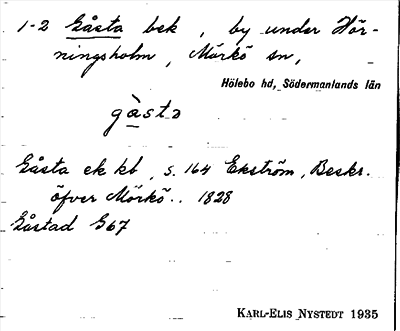 1-2 Gåsta bek, by under Hör-
ningsholm, Mörkö sn,
Hölebo hd, Södermanlands län
gàsta
Gåsta ek kb, s. 164 Ekström, Beskr.
öfver Mörkö.. 1828
Gåstad G67
KARL-ELIS NYSTEDT 1935